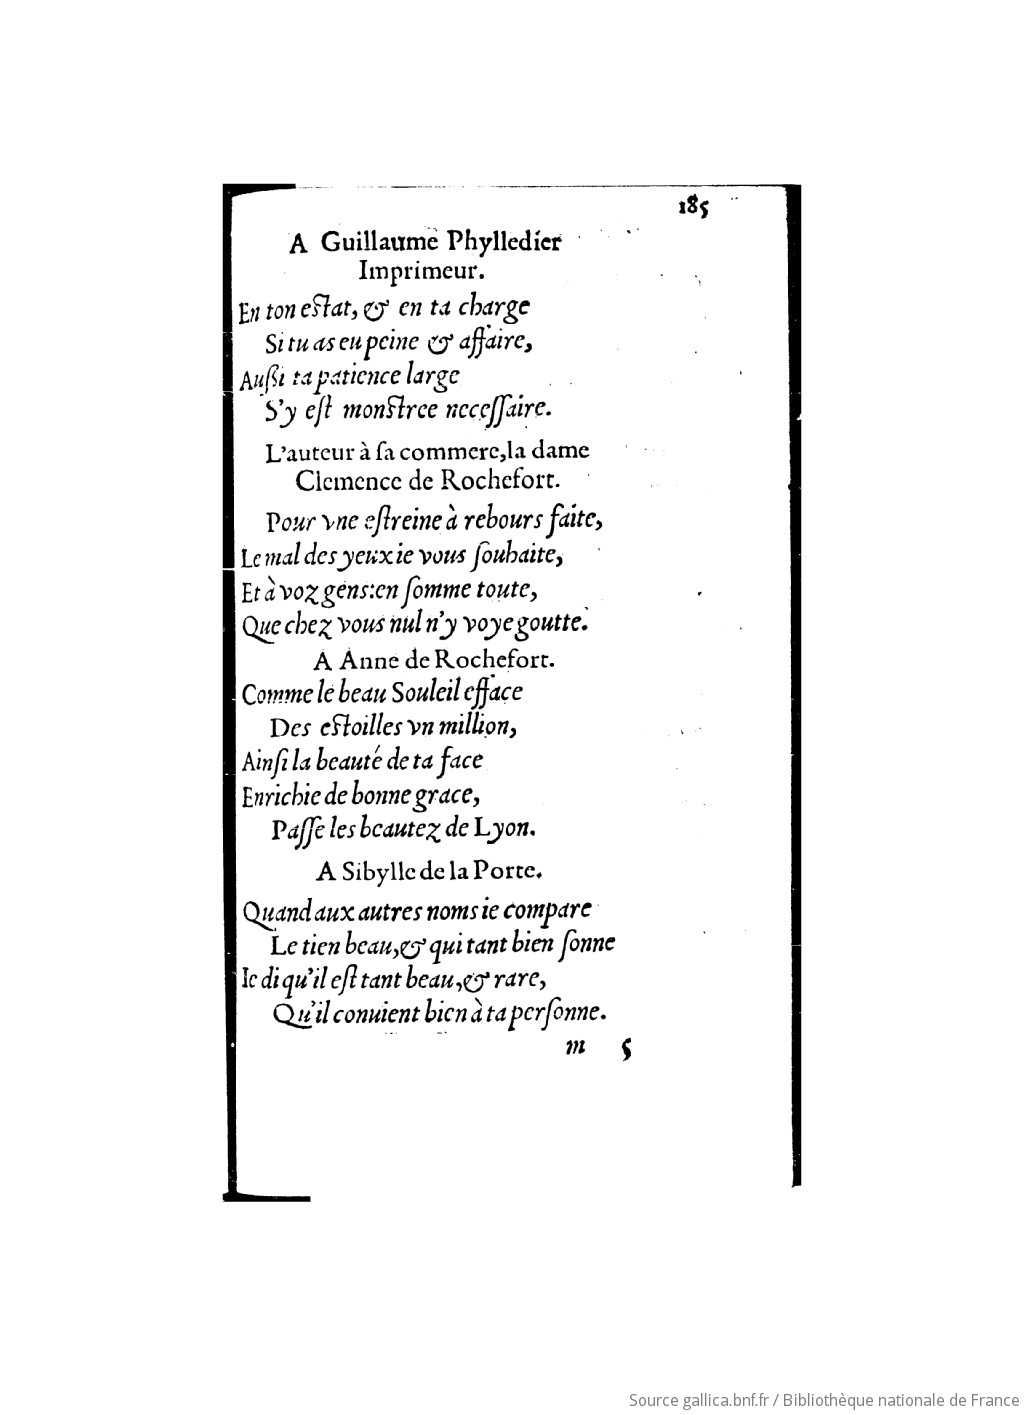 185
A Guillaume Phylledier
Imprimeur.
En ton estat, & en ta charge
Si tu as eu peine & affaire,
Außi ta patience large
S'y eſt monstree neceſſaire.
L'auteur à ſa commere, la dame
Clemence de Rochefort.
Pour vne eſtreine à rebours faite,
Le mal des yeux ie vous ſouhaite,
Et à voz gens: en ſomme toute,
Que chez vous nul n'y voye goutte.
A Anne de Rochefort.
Comme le beau Souleil efface
Des estoilles vn million,
Ainſi la beauté de ta face
Enrichie de bonne grace,
Paſſe les beautez de Lyon.
A Sibylle de la Porte.
Quand aux autres noms ie compare
Le tien beau, & qui tant bien ſonne
Ie di qu'il eſt tant beau, & rare,
Qu'il conuient bien à ta perſonne.
m 5
Source gallica.bnf.fr / Bibliothèque nationale de France